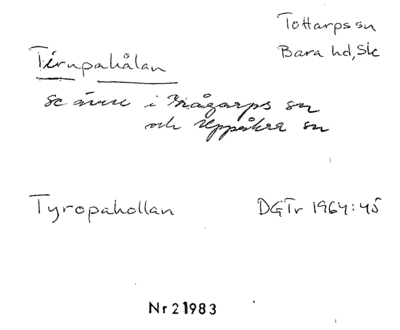 Tottarps sn
Bara hd, Sk
Tirupahålan
se även i Brågarps sn
och Uppåkra sn
Tyropahollan
DGTr 1964:45
Nr 21983